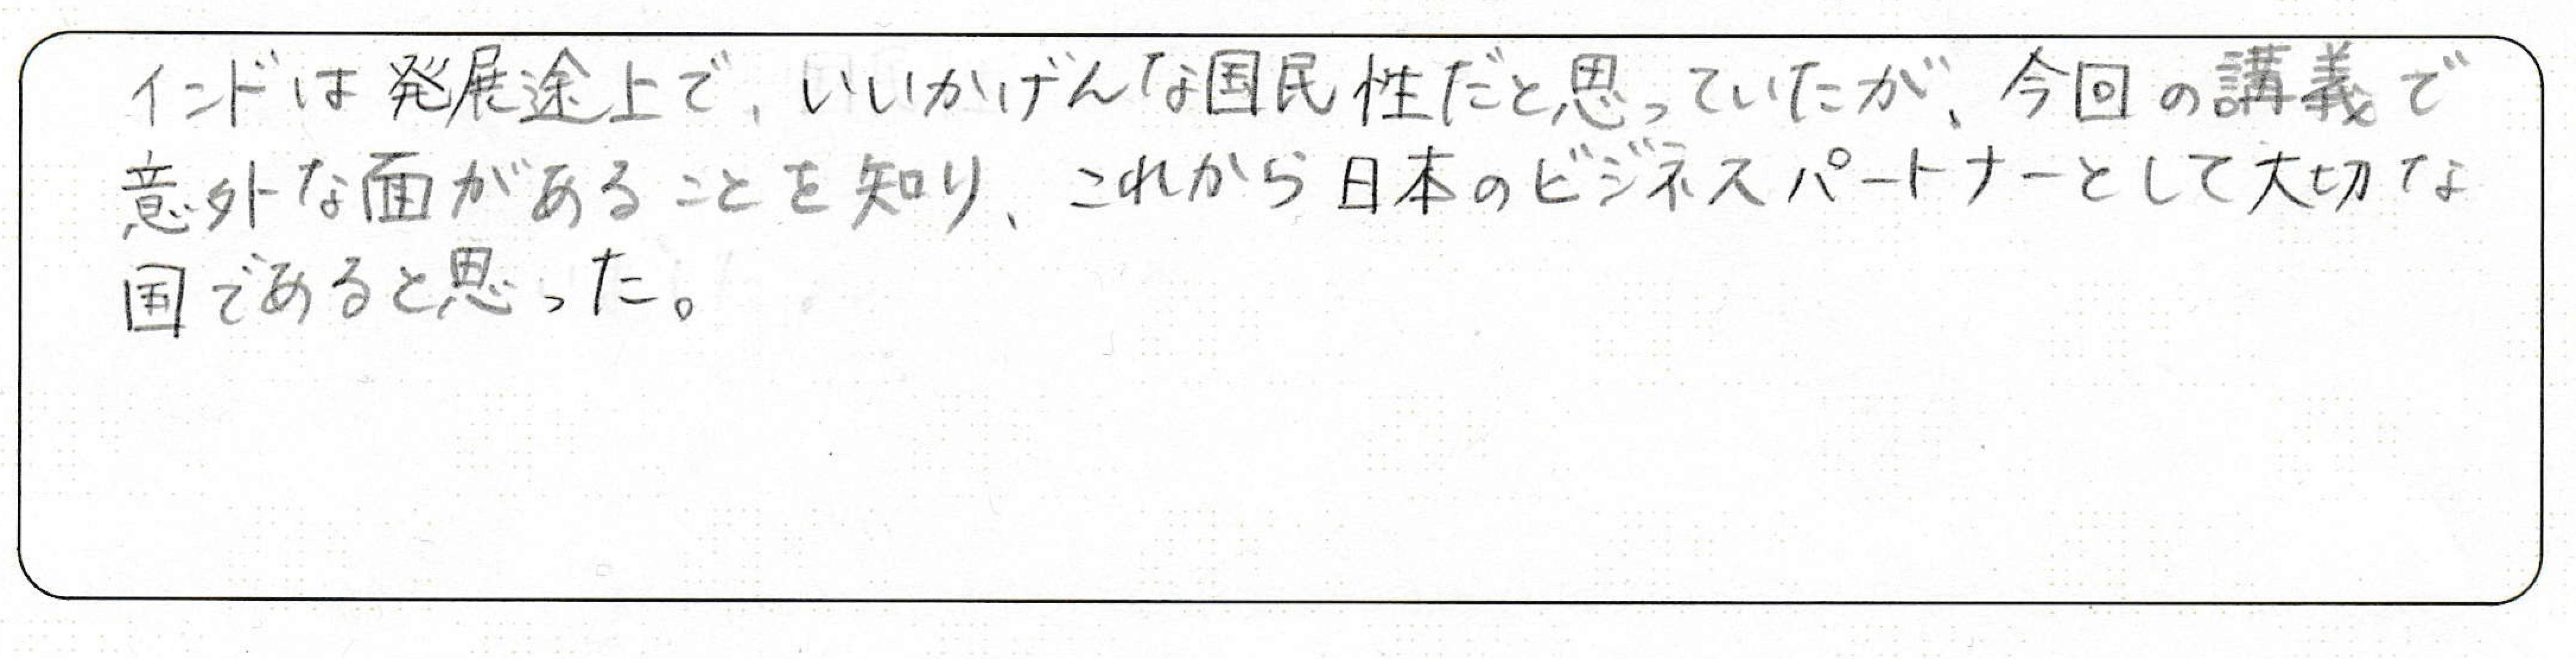 インドは発展途上で、いいかげんな国民性だと思っていたが、今回の講義で
意外な面があることを知り、これから日本のビジネスパートナーとして大切な
国であると思った。